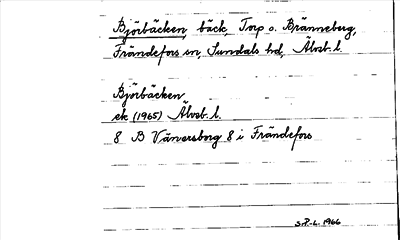 Björbäcken, bäck, Torp o. Bränneberg,
Frändefors sn, Sundals hd, Älvsb. l.
Björbäcken
ek (1965) Älvsb. l.
8 B Vänersborg 8 i Frändefors
S.P-L. 1966